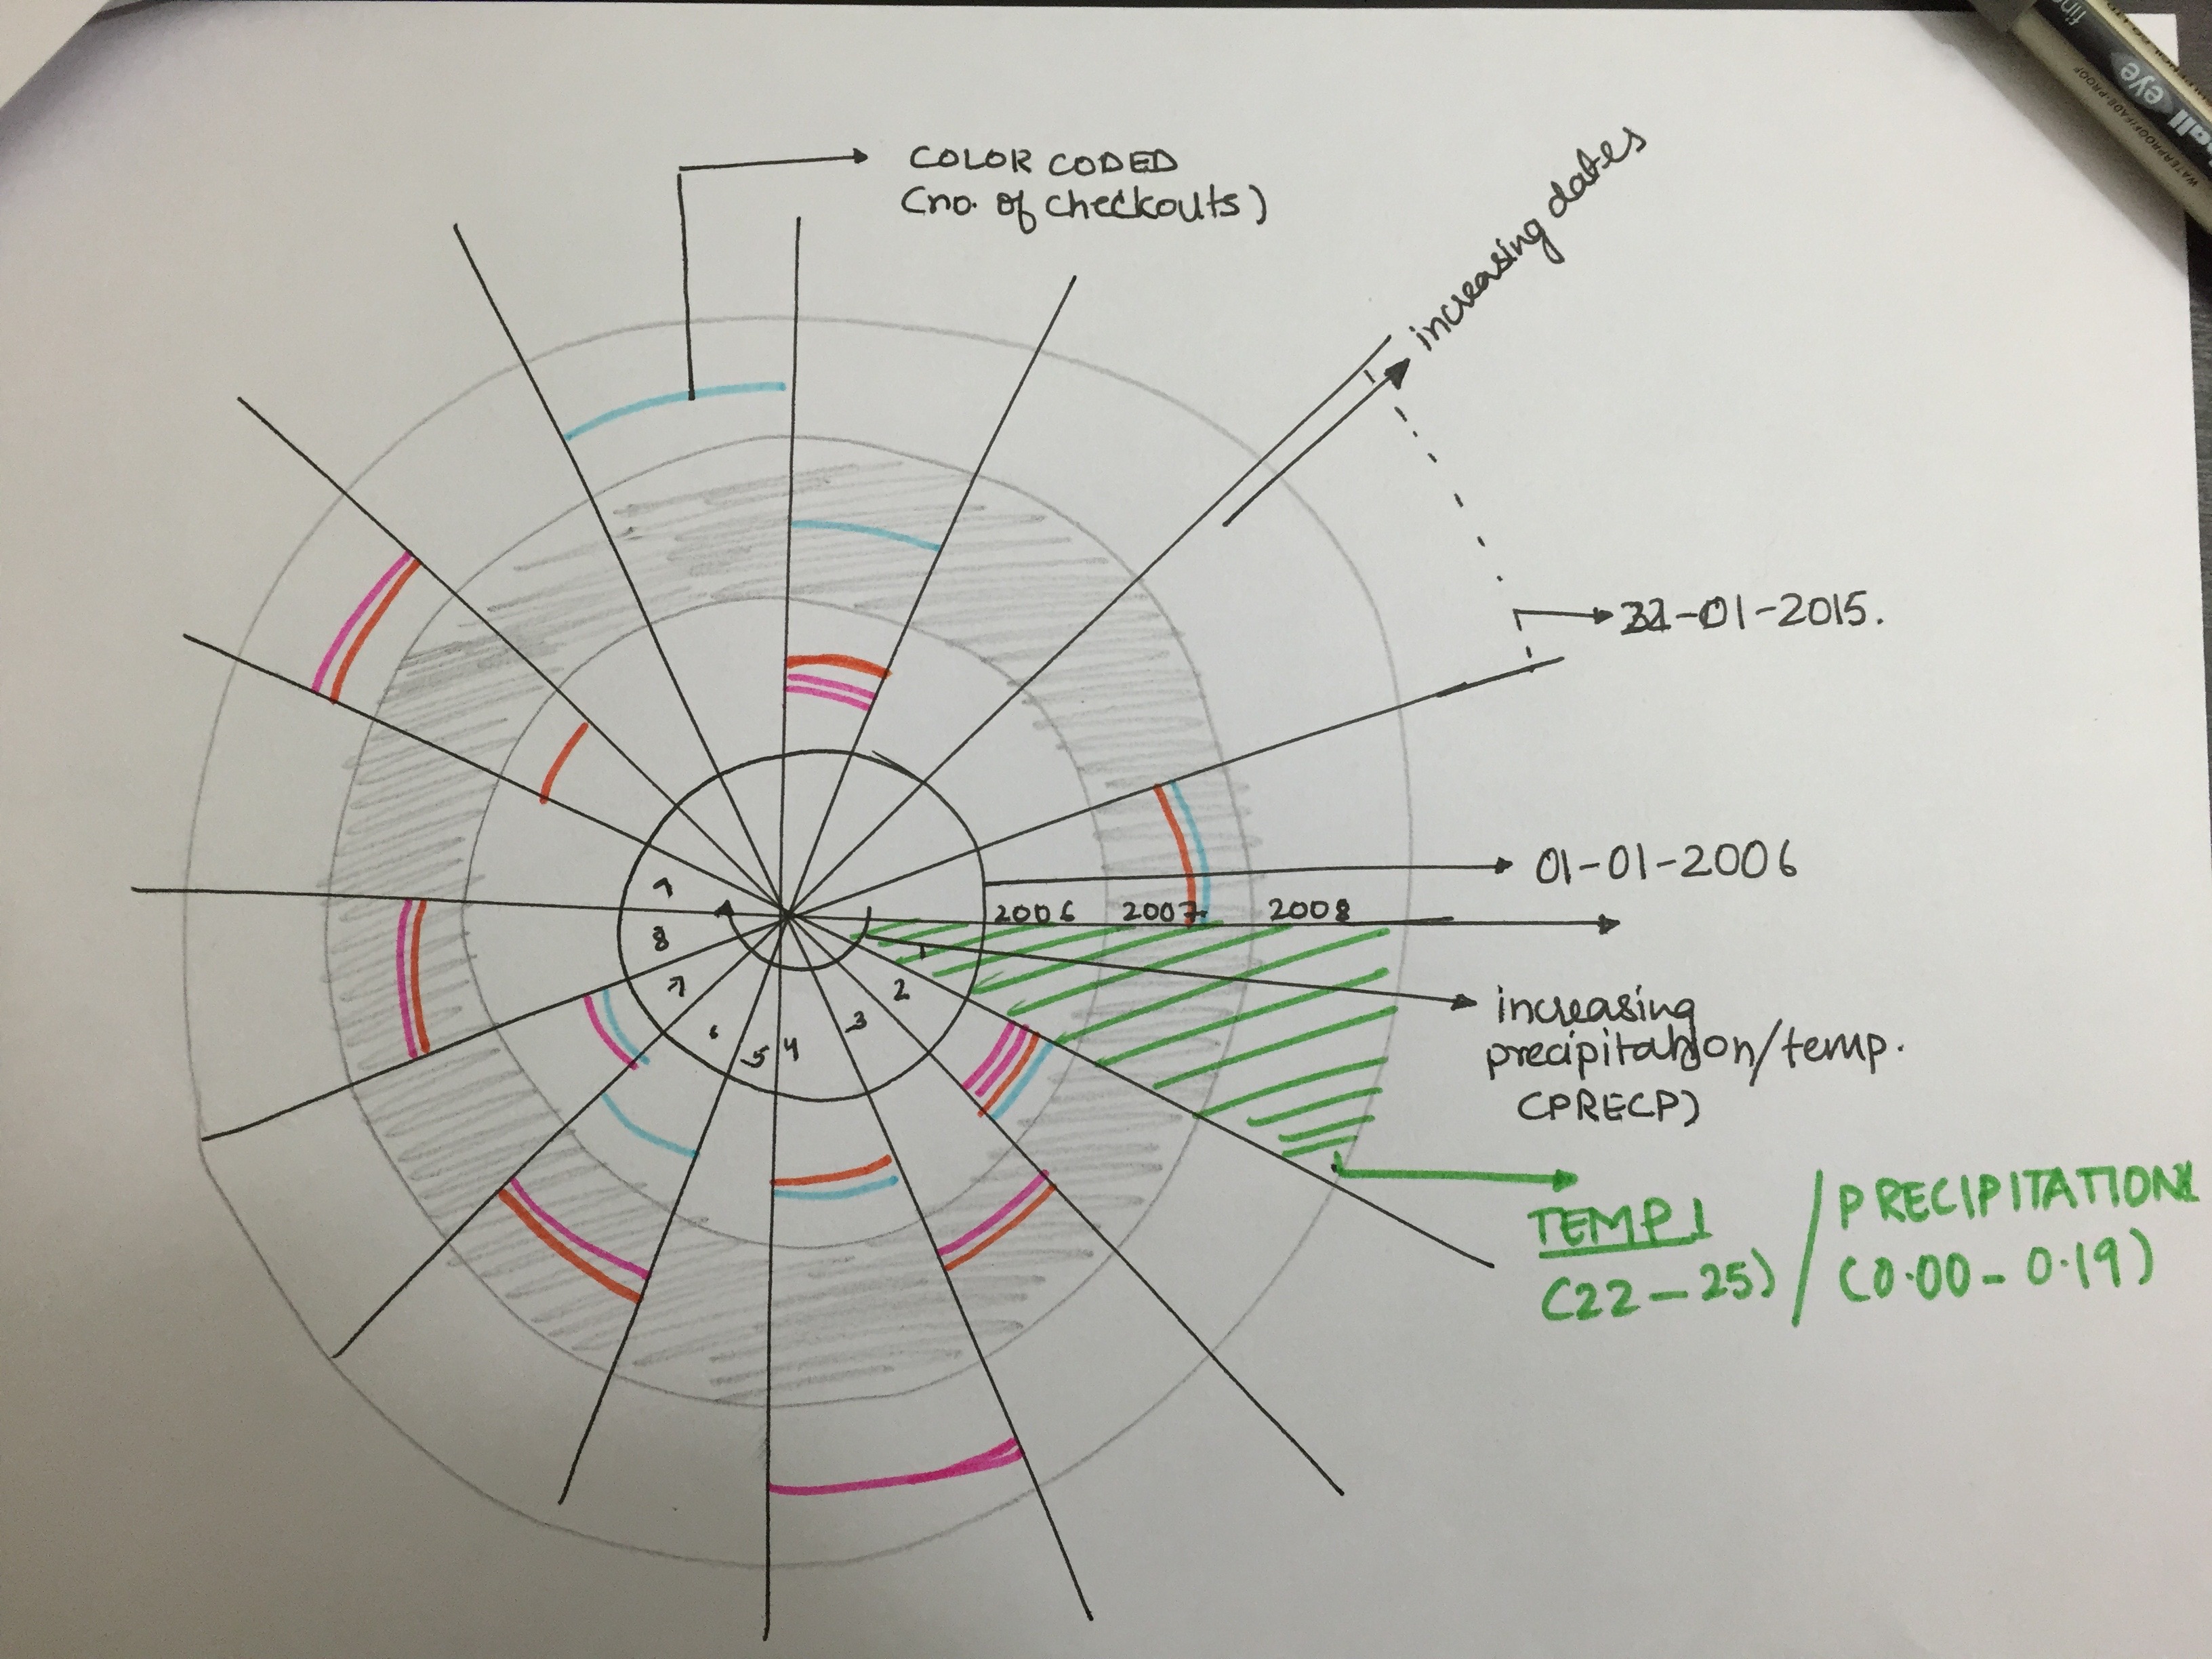 COLOR CODED
(no. of checkouts)
increasing dates
-01-2015.
01-01-2006
2006 2007 2008
increasing
precipitation/temp.
(PRECP)
TEMP 1 / PRECIPITATION
(22-25) / (0.00-0.19)
1
2
3
4
5
6
7
8
eye
WATERPROOF/FADE-PROOF